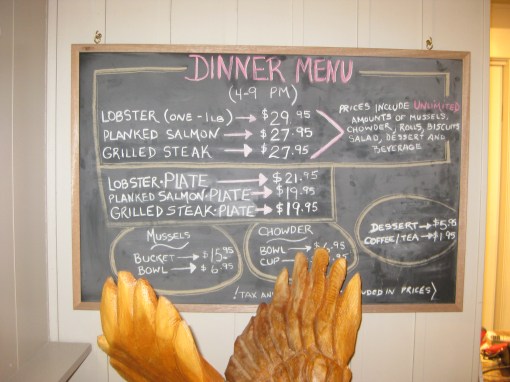 DINNER MENU
(4-9 PM)
LOBSTER (ONE-1LB) → $29.95
PLANKED SALMON → $27.95
GRILLED STEAK → $27.95
PRICES INCLUDE UNLIMITED
AMOUNTS OF MUSSELS,
CHOWDER, ROLLS, BISCUITS
SALAD, DESSERT AND
BEVERAGE
LOBSTER-PLATE → $21.95
PLANKED SALMON-PLATE → $19.95
GRILLED STEAK-PLATE → $19.95
MUSSELS
BUCKET → $15.95
BOWL → $6.95
CHOWDER
BOWL
CUP
DESSERT → $5.95
COFFEE/TEA → $1.95
(TAX IN PRICES)